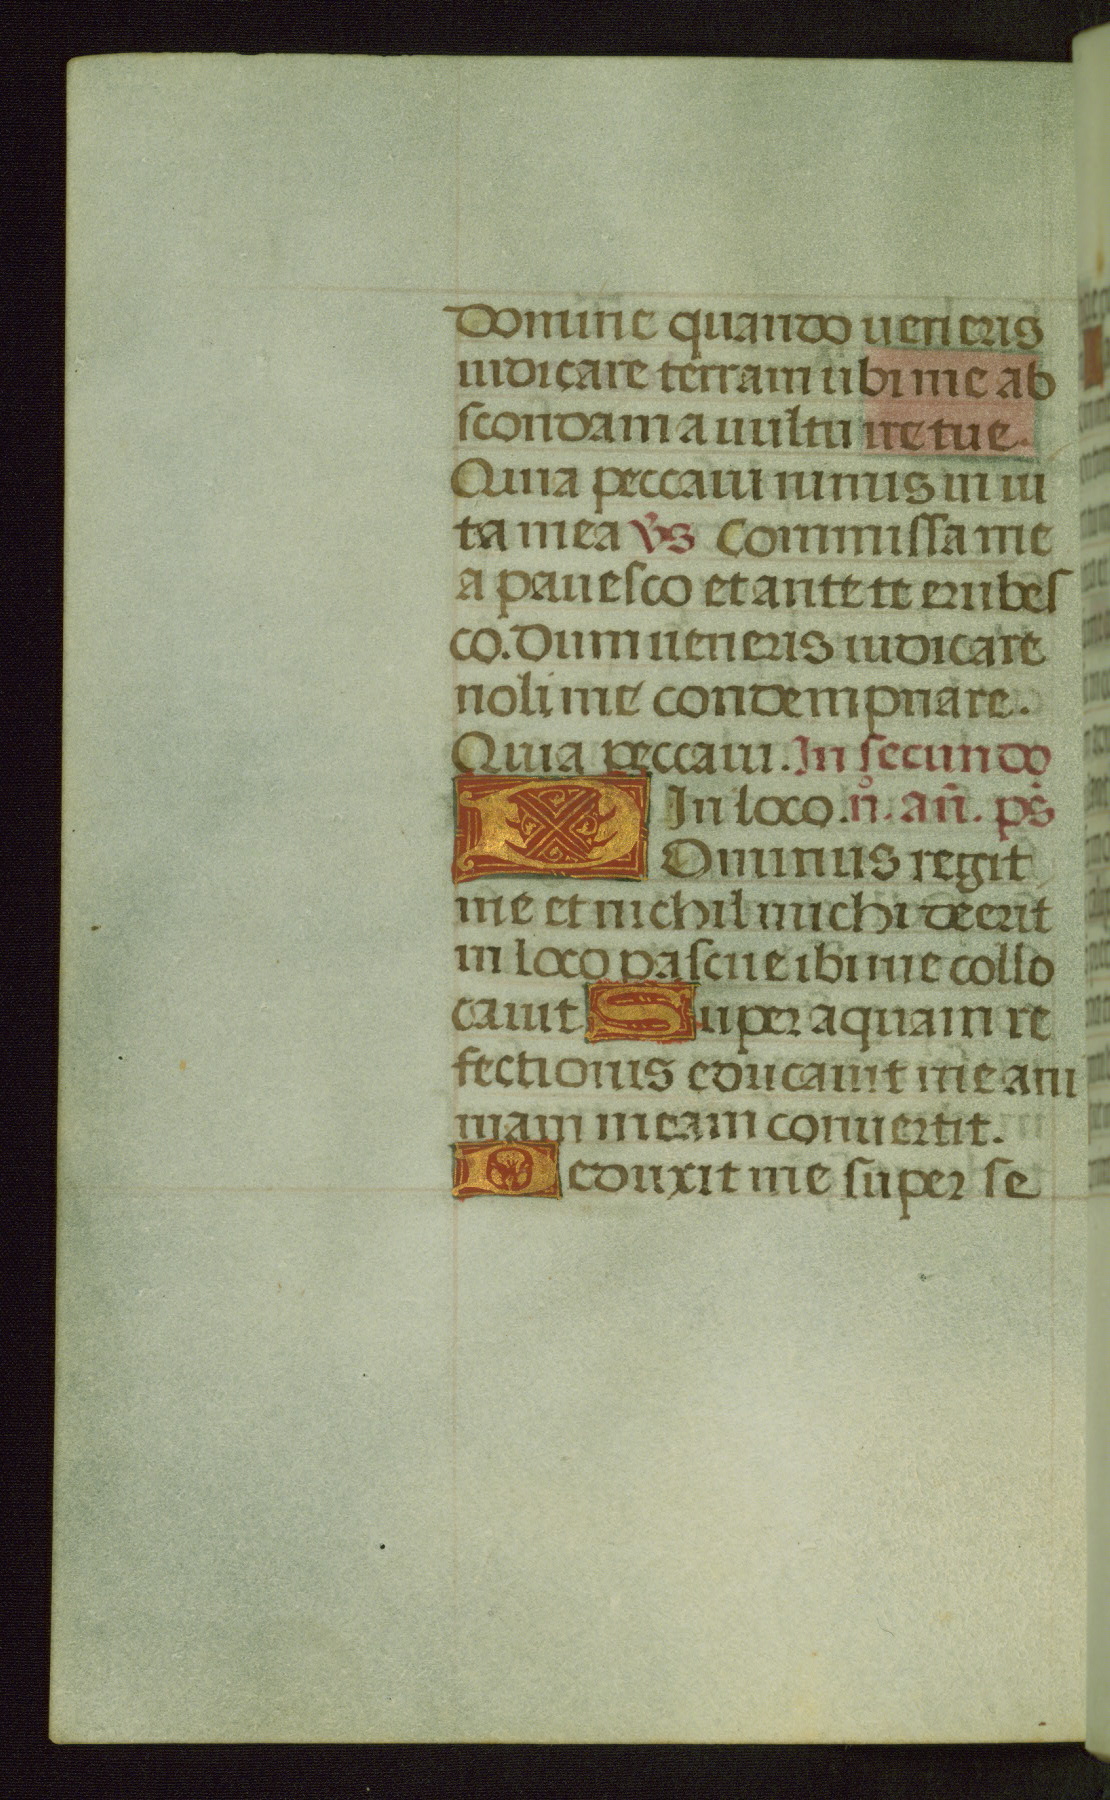 Domine quando ueneris
iudicare terram ubi me ab
scondam a uultu ire tue.
Quia peccaui nimis in ui
ta mea v̄s Commissa me
a pauesco et ante te erubes
co. Dum ueneris iudicare
noli me condempnare.
Quia peccaui. In secundo
In loco. n̊. an̄. ps̄
Dominus regit
me et nichil michi deerit
in loco pascue ibi me collo
cauit Super aquam re
fectionis educauit me ani
mam meam conuertit.
Deduxit me super se